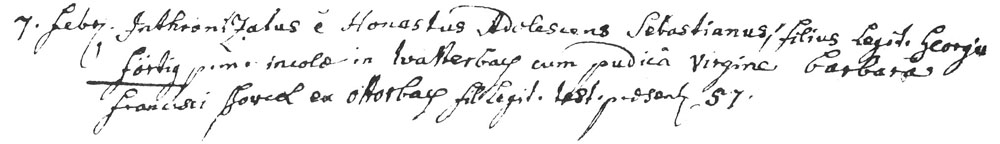 7. Febr. Inthronizatus ē Honestus Adolescens Sebastianus, filius legit. Georgii
Förtig p.m. incolæ in Watterbach cum pudicâ Virgine Barbara
Francisci ex Ottorbach fil. legit. test. present. 57.